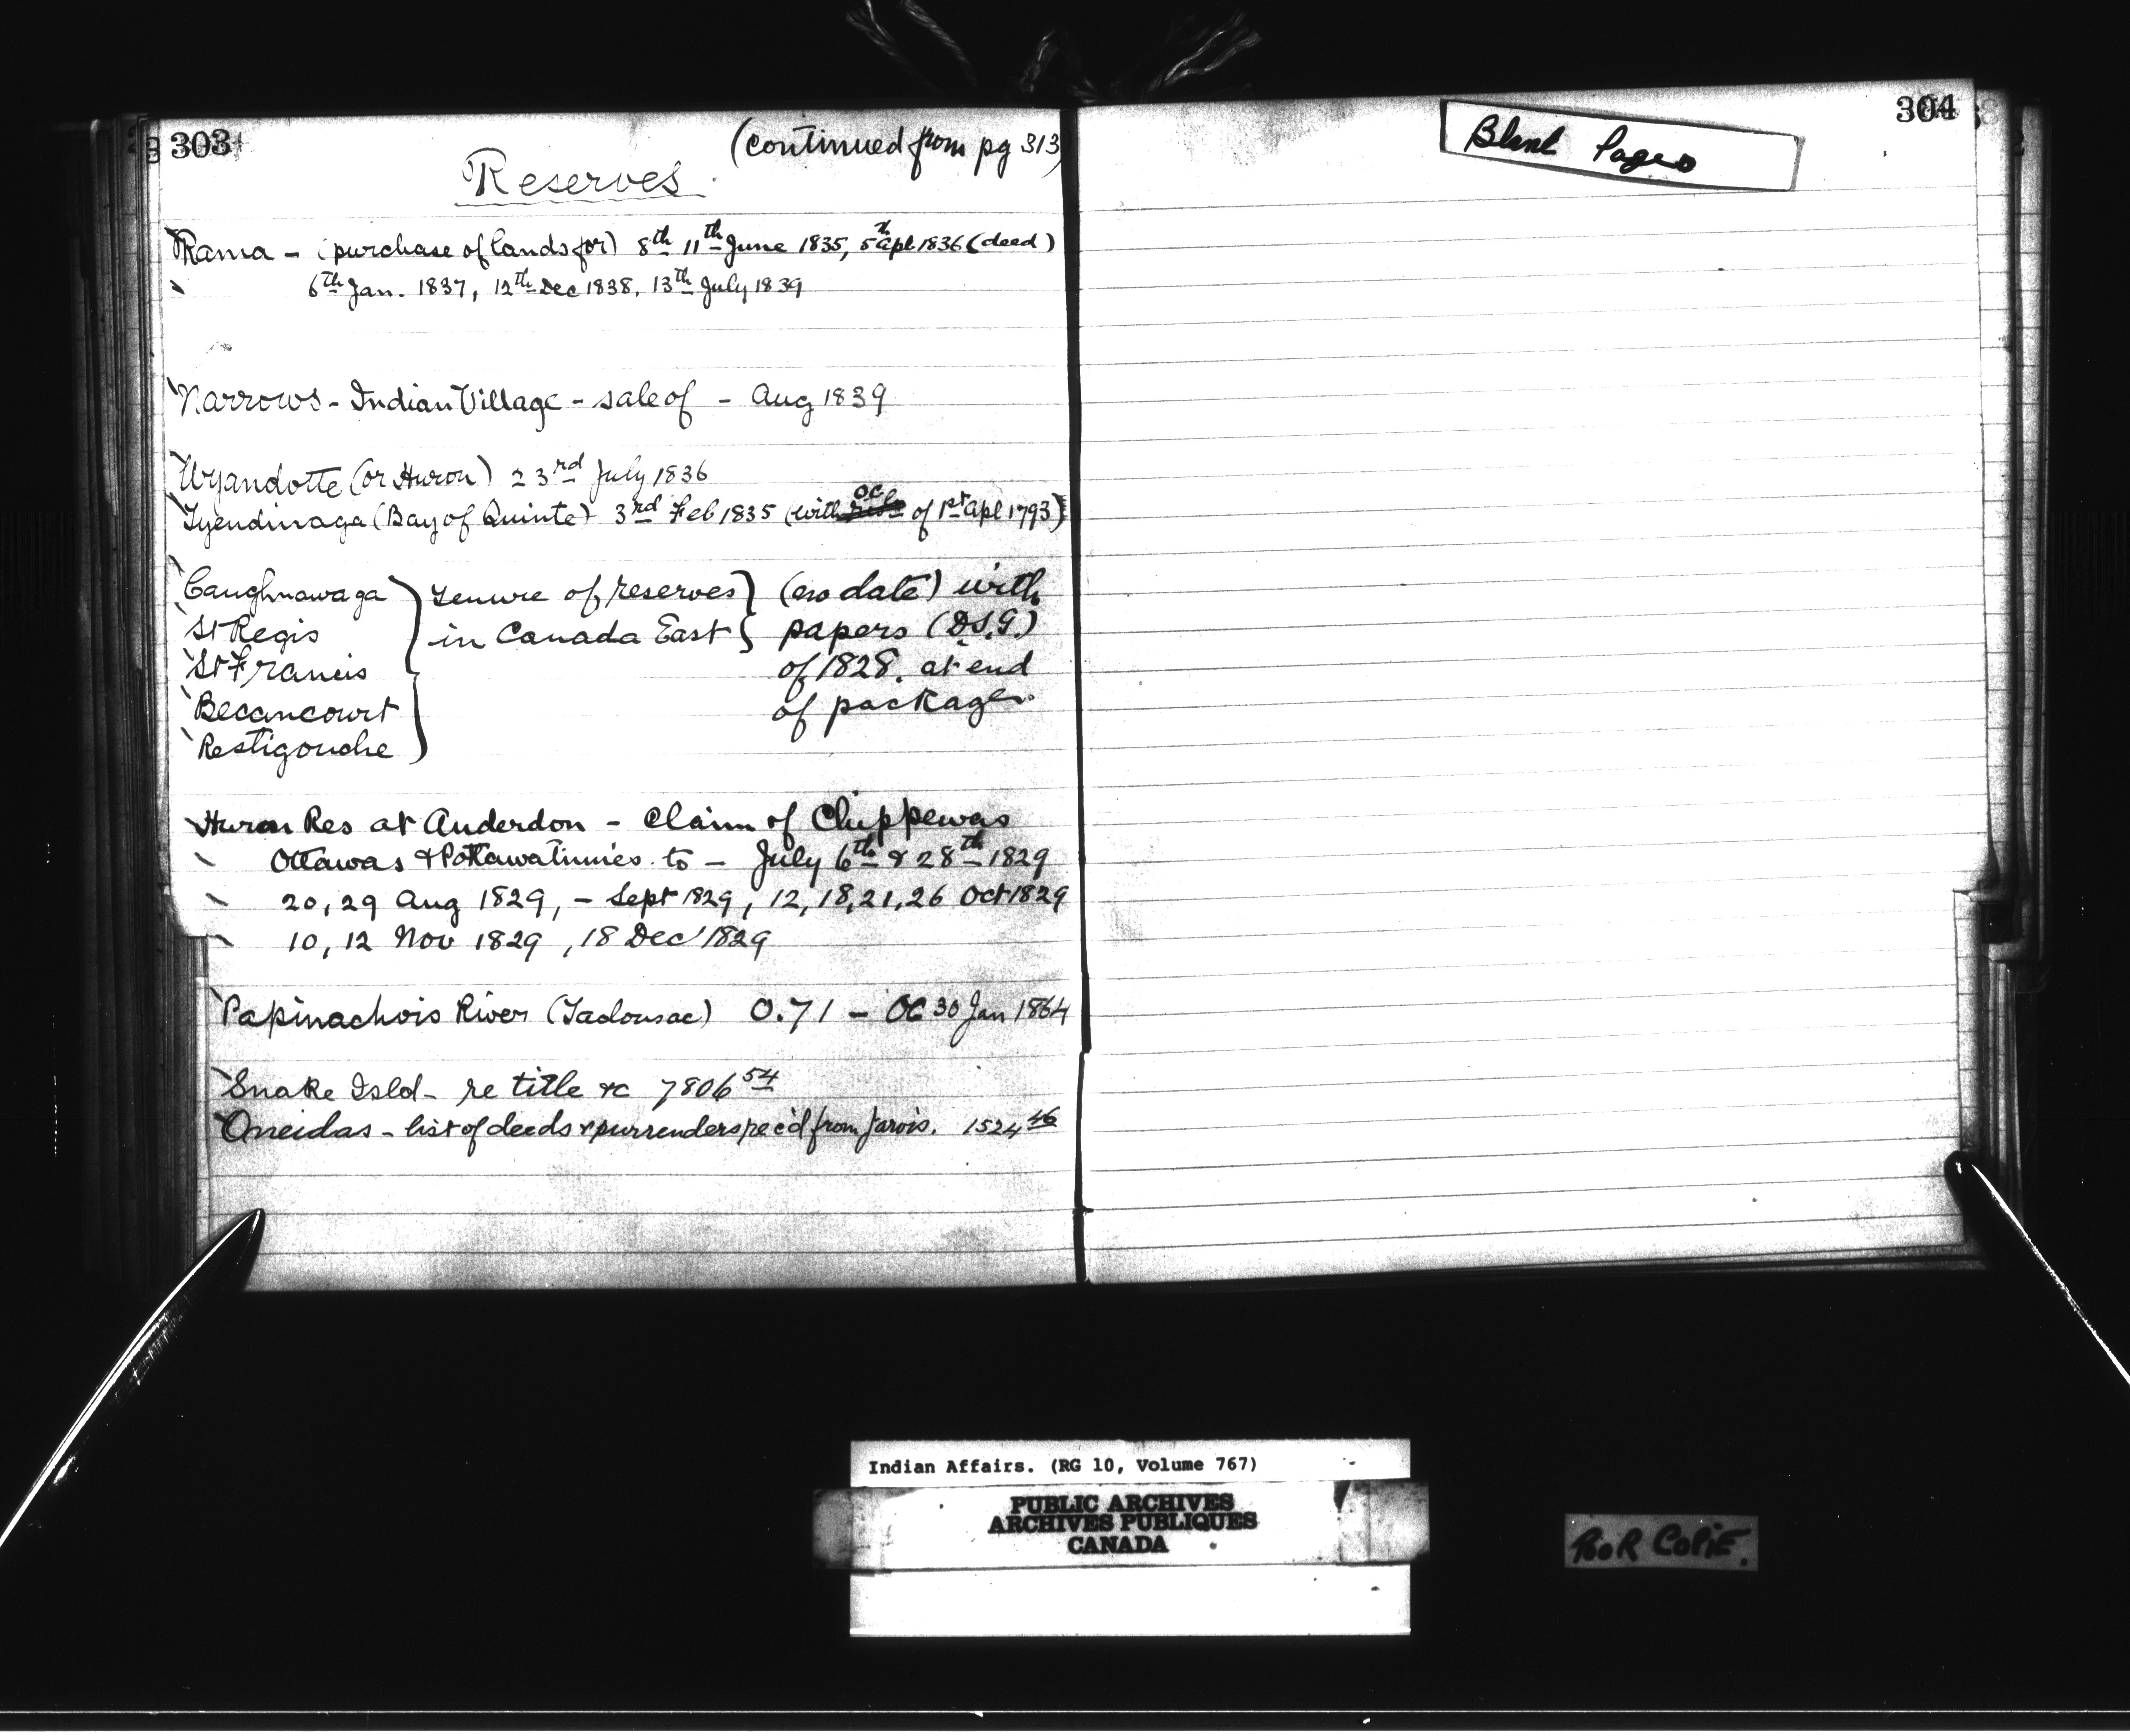 303
(continued from pg 313)
Reserves
Rama - (purchase of lands for) 8th 11th June 1835, 5th Apl 1836 (deed)
6th Jan. 1837, 12th Dec 1838, 13th July 1839
Narrows - Indian Village - sale of - Aug 1839
Wyandotte (or Huron) 23rd July 1836
Tyendinaga (Bay of Quinte) 3rd Feb 1835 (with OC of 1st Apl 1793)
Caughnawaga } Tenure of reserves } (no date) with
St Regis in Canada East } papers (D.S.G.)
St Francis of 1828. at end
Becancourt of package.
Restigouche
Huron Res at Anderdon - Claim of Chippewas
Ottawas & Pottawatimies to - July 6th & 28th 1829
20, 29 Aug 1829, - Sept 1829, 12, 18, 21, 26 Oct 1829
10, 12 Nov 1829, 18 Dec 1829
Papinachois River (Tadousac) 0.71 - OC 30 Jan 1864
Snake Isld - re title &c 7806 54
Oneidas - list of deeds & surrenders rec'd from Jarvis. 1524 46
304
Blank Pages
Indian Affairs. (RG 10, Volume 767)
PUBLIC ARCHIVES
ARCHIVES PUBLIQUES
CANADA
POOR COPIE.